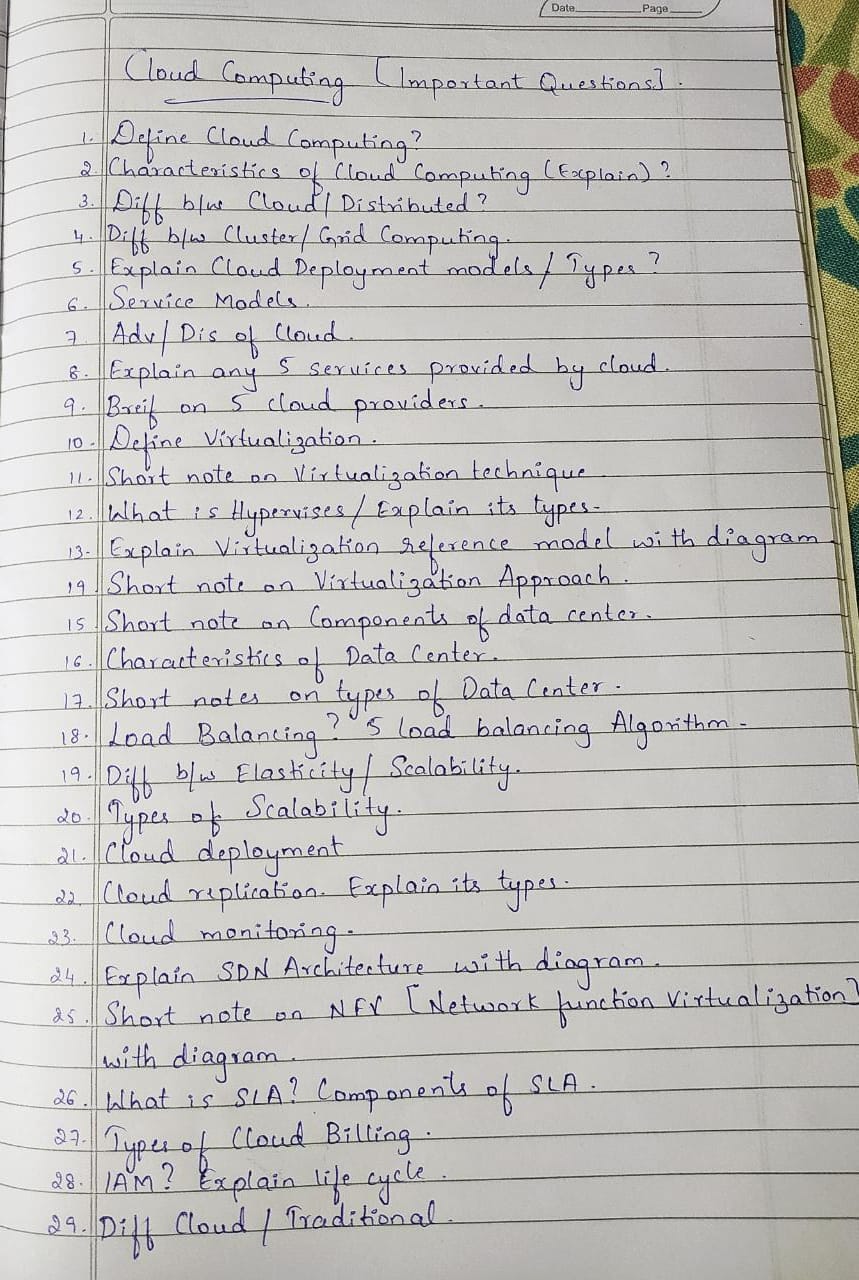 Date Page
Cloud Computing [Important Questions].
1. Define Cloud Computing?
2. Characteristics of Cloud Computing (Explain)?
3. Diff b/w Cloud/ Distributed?
4. Diff b/w Cluster/ Grid Computing.
5. Explain Cloud Deployment models/ Types?
6. Service Models.
7. Adv/ Dis of Cloud.
8. Explain any 5 services provided by cloud.
9. Breif on 5 cloud providers.
10. Define Virtualization.
11. Short note on Virtualization technique
12. What is Hypervises/ Explain its types.
13. Explain Virtualization reference model with diagram
14 Short note on Virtualization Approach.
15 Short note on Components of data center.
16. Characteristics of Data Center.
17. Short notes on types of Data Center.
18. Load Balancing? 5 load balancing Algorithm.
19. Diff b/w Elasticity/ Scalability.
20. Types of Scalability.
21. Cloud deployment
22 Cloud replication. Explain its types.
23. Cloud monitoring.
24. Explain SDN Architecture with diagram.
25. Short note on NFV [Network function Virtualization]
with diagram.
26. What is SLA? Components of SLA.
27. Types of Cloud Billing.
28. IAM? Explain life cycle.
29. Diff Cloud / Traditional.